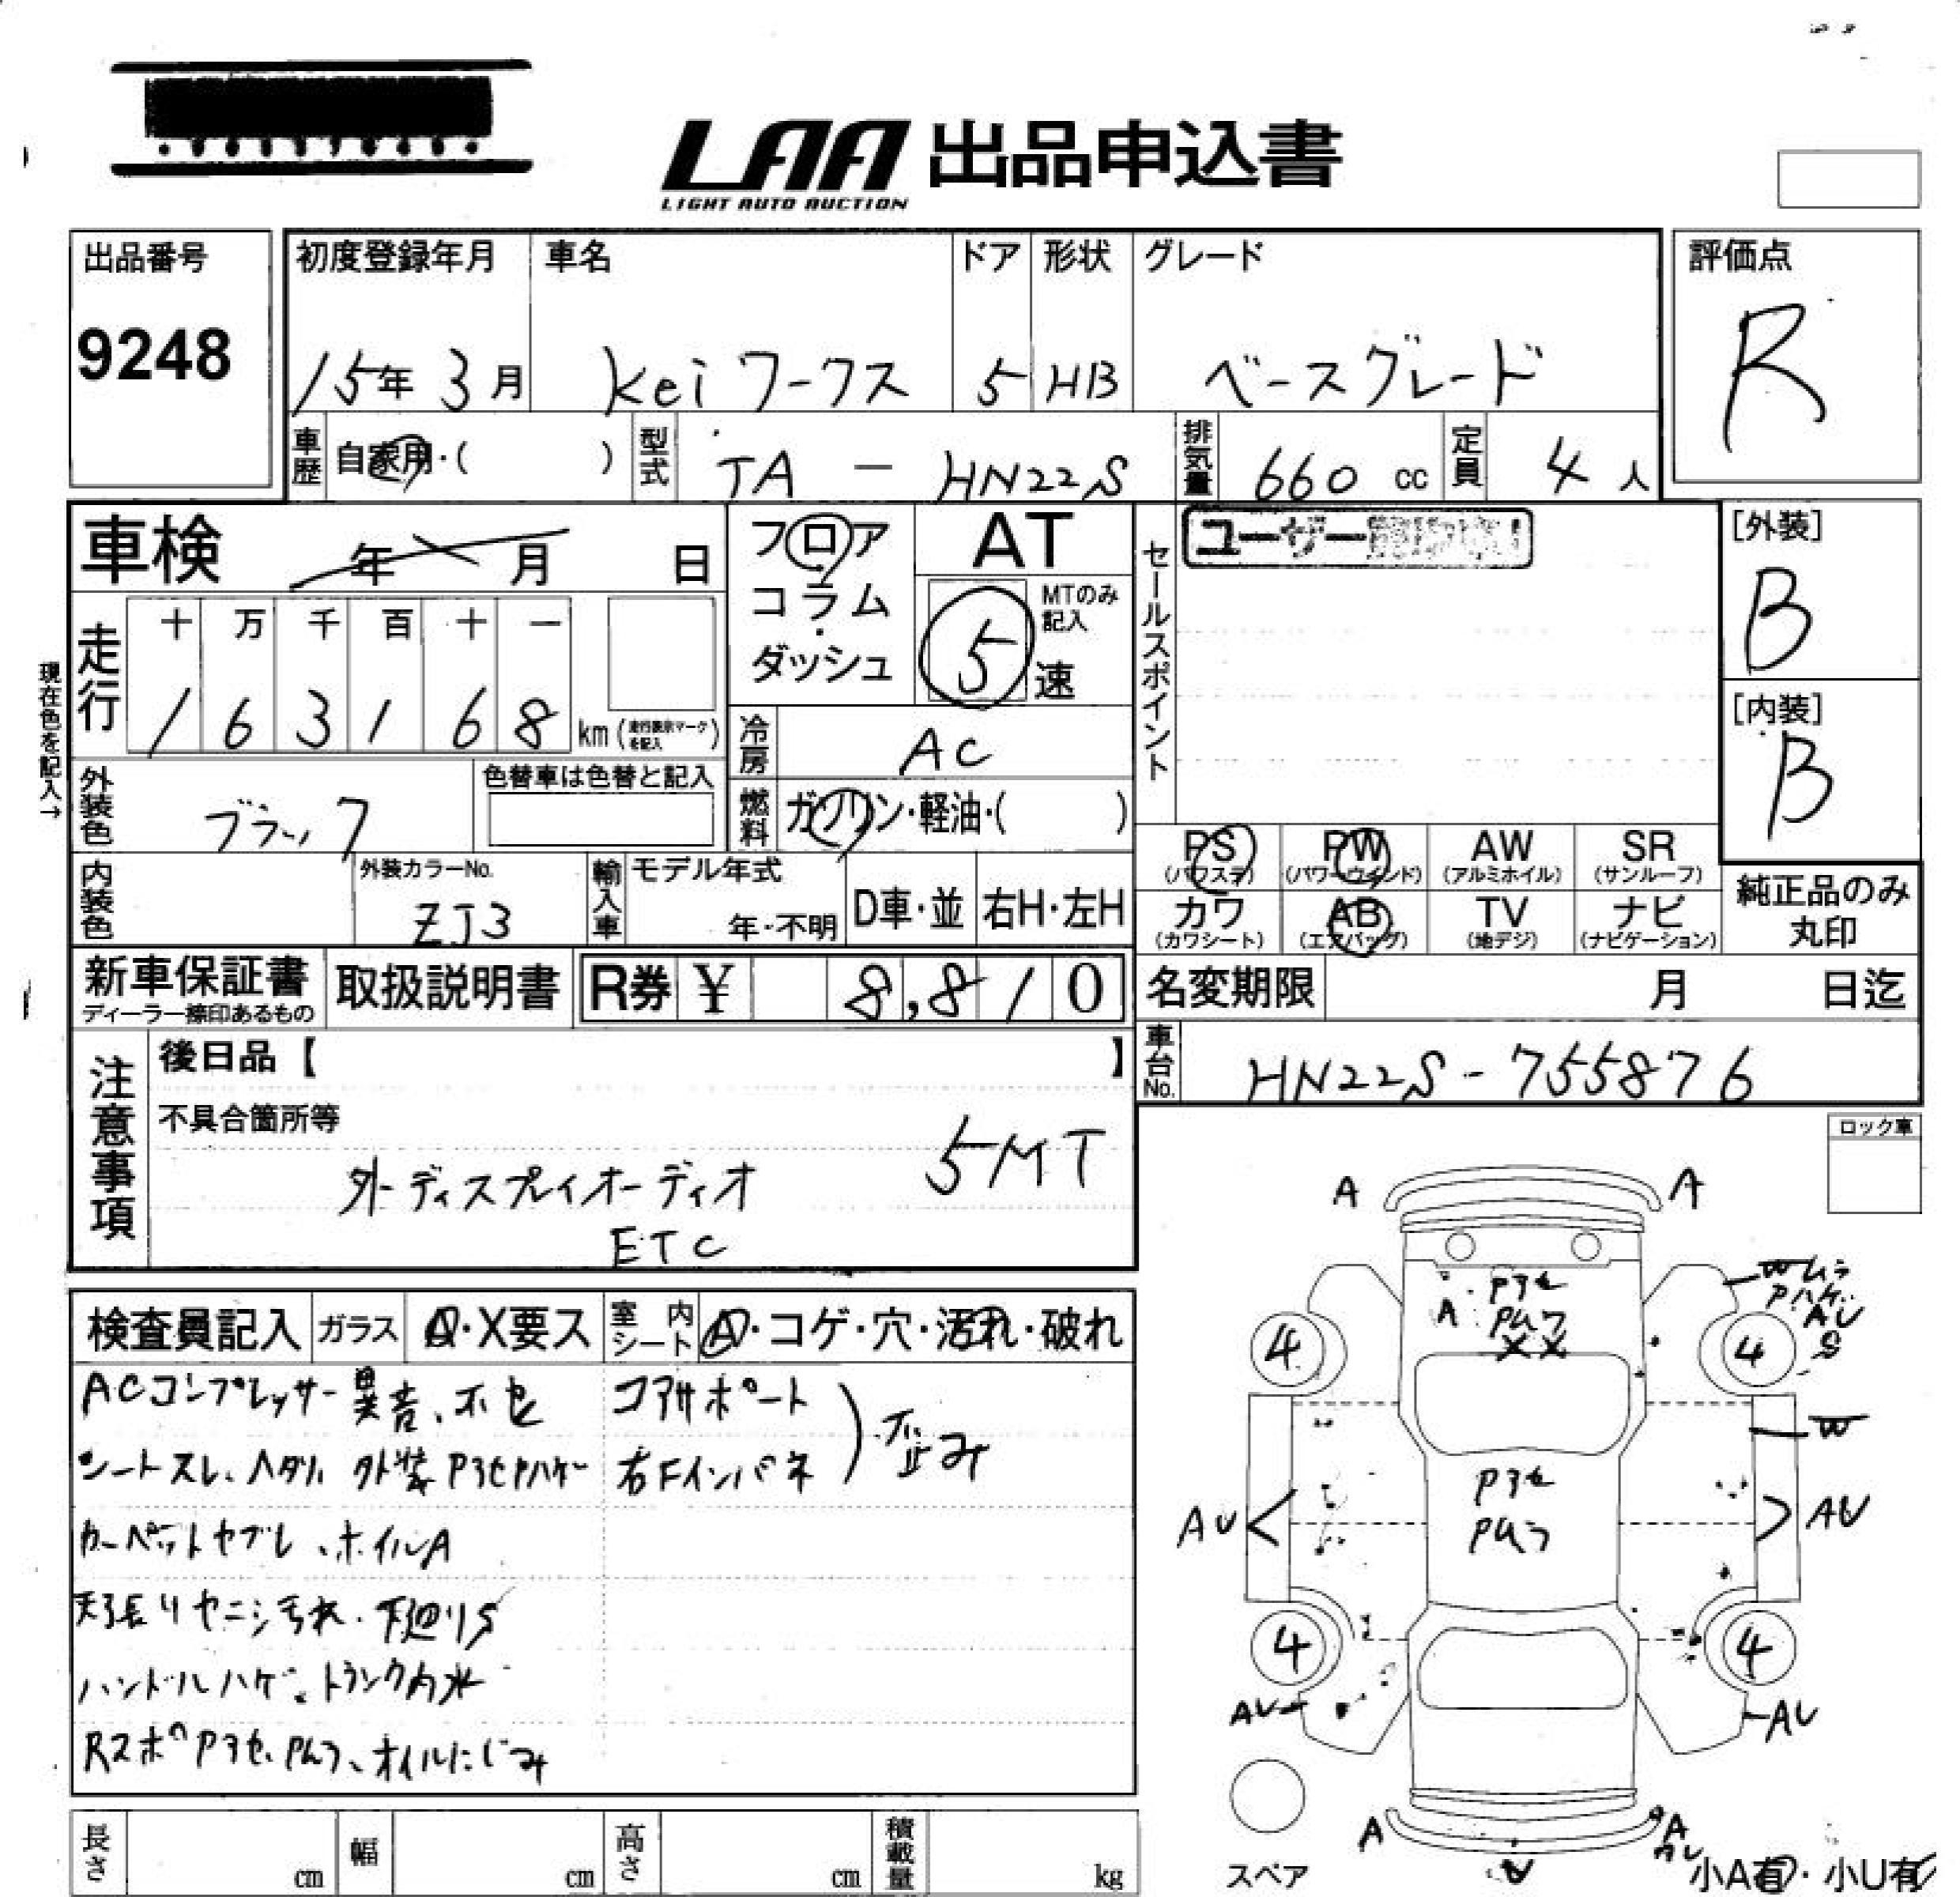 LAA 出品申込書
LIGHT AUTO AUCTION
出品番号
9248
初度登録年月 車名 ドア 形状 グレード
15年 3月 Kei ワークス 5 HB ベースグレード
評価点
R
車歴 自家用・( ) 型式 TA - HN22S 排気量 660 cc 定員 4 人
車検 年 月 日
フロア
コラム
・
ダッシュ
AT
MTのみ
記入
5 速
セールスポイント
ユーザー
[外装]
B
[内装]
B
現在色を記入→
走行 十 万 千 百 十 一
1 6 3 1 6 8 km (走行表示マークを記入)
冷房 AC
燃料 ガソリン・軽油・( )
外装色 ブラック
色替車は色替と記入
内装色
外装カラーNo.
ZJ3
輸入車 モデル年式
年・不明
D車・並 右H・左H
PS (パワステ) PW (パワーウィンド) AW (アルミホイル) SR (サンルーフ)
カワ (カワシート) AB (エアバッグ) TV (地デジ) ナビ (ナビゲーション)
純正品のみ
丸印
新車保証書
ディーラー捺印あるもの
取扱説明書 R券 ¥ 8,810
名変期限 月 日迄
車台No. HN22S-755876
注意事項
後日品【 】
不具合箇所等
5MT
外ディスプレイオーディオ
ETC
ロック車
検査員記入 ガラス A・X要ス 室内シート A・コゲ・穴・汚れ・破れ
ACコンプレッサー異音、不セ コアサポート
シートスレ、ヘタリ 外装PヨセPハゲ 右Fインパネ
歪み
カーペットヤブレ、ホイルA
天張りヤニシ汚れ・下廻りS
ハンドルハゲ、トランク内水
Rスポ Pヨセ、Pムラ、オイルにじみ
A A
Pヨセ
A Pムラ
XX
W ムラ
Pハゲ
AU
S
4 4
W
Pヨセ
Pムラ
AU AU
4 4
AU AU
A A
U
スペア
小A有・小U有
長さ cm 幅 cm 高さ cm 積載量 kg